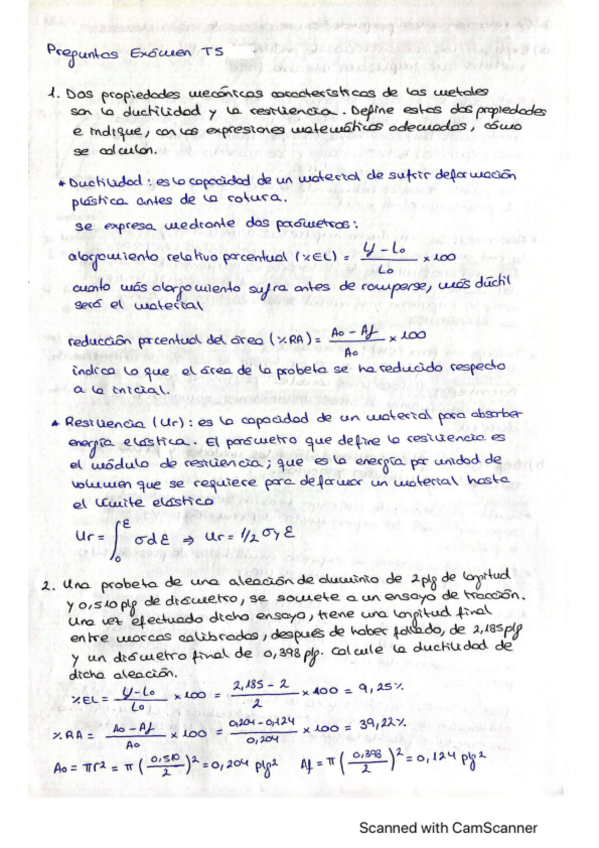 Preguntas Exámen T5
1. Dos propiedades mecánicas características de los metales
son la ductilidad y la resiliencia. Define estas dos propiedades
e indique, con las expresiones matemáticas adecuadas, cómo
se calculan.
* Ductilidad : es la capacidad de un material de sufrir deformación
plástica antes de la rotura.
se expresa mediante dos parámetros :
alargamiento, relativo porcentual (%EL) = (lf - Lo / Lo) x 100
cuanto más alargamiento sufra antes de romperse, más dúctil
será el material
reducción porcentual del área (%RA) = (Ao - Af / Ao) x 100
indica lo que el área de la probeta se ha reducido respecto
a la inicial.
* Resiliencia (Ur) : es la capacidad de un material para absorber
energía elástica. El parámetro que define la resiliencia es
el módulo de resiliencia; que es la energía por unidad de
volumen que se requiere para deformar un material hasta
el límite elástico
Ur = ∫₀^ε σdε ⇒ Ur = 1/2 σy ε
2. Una probeta de una aleación de aluminio de 2plg de longitud
y 0,510 plg de diámetro, se somete a un ensayo de tracción.
Una vez efectuado dicho ensayo, tiene una longitud final
entre marcas calibradas, después de haber fallado, de 2,185plg
y un diámetro final de 0,398 plg. calcule la ductilidad de
dicha aleación.
%EL = (lf - Lo / Lo) x 100 = (2,185 - 2 / 2) x 100 = 9,25%
%RA = (Ao - Af / Ao) x 100 = (0,204 - 0,124 / 0,204) x 100 = 39,22%
Ao = πr² = π (0,510 / 2)² = 0,204 plg² Af = π (0,398 / 2)² = 0,124 plg²
Scanned with CamScanner